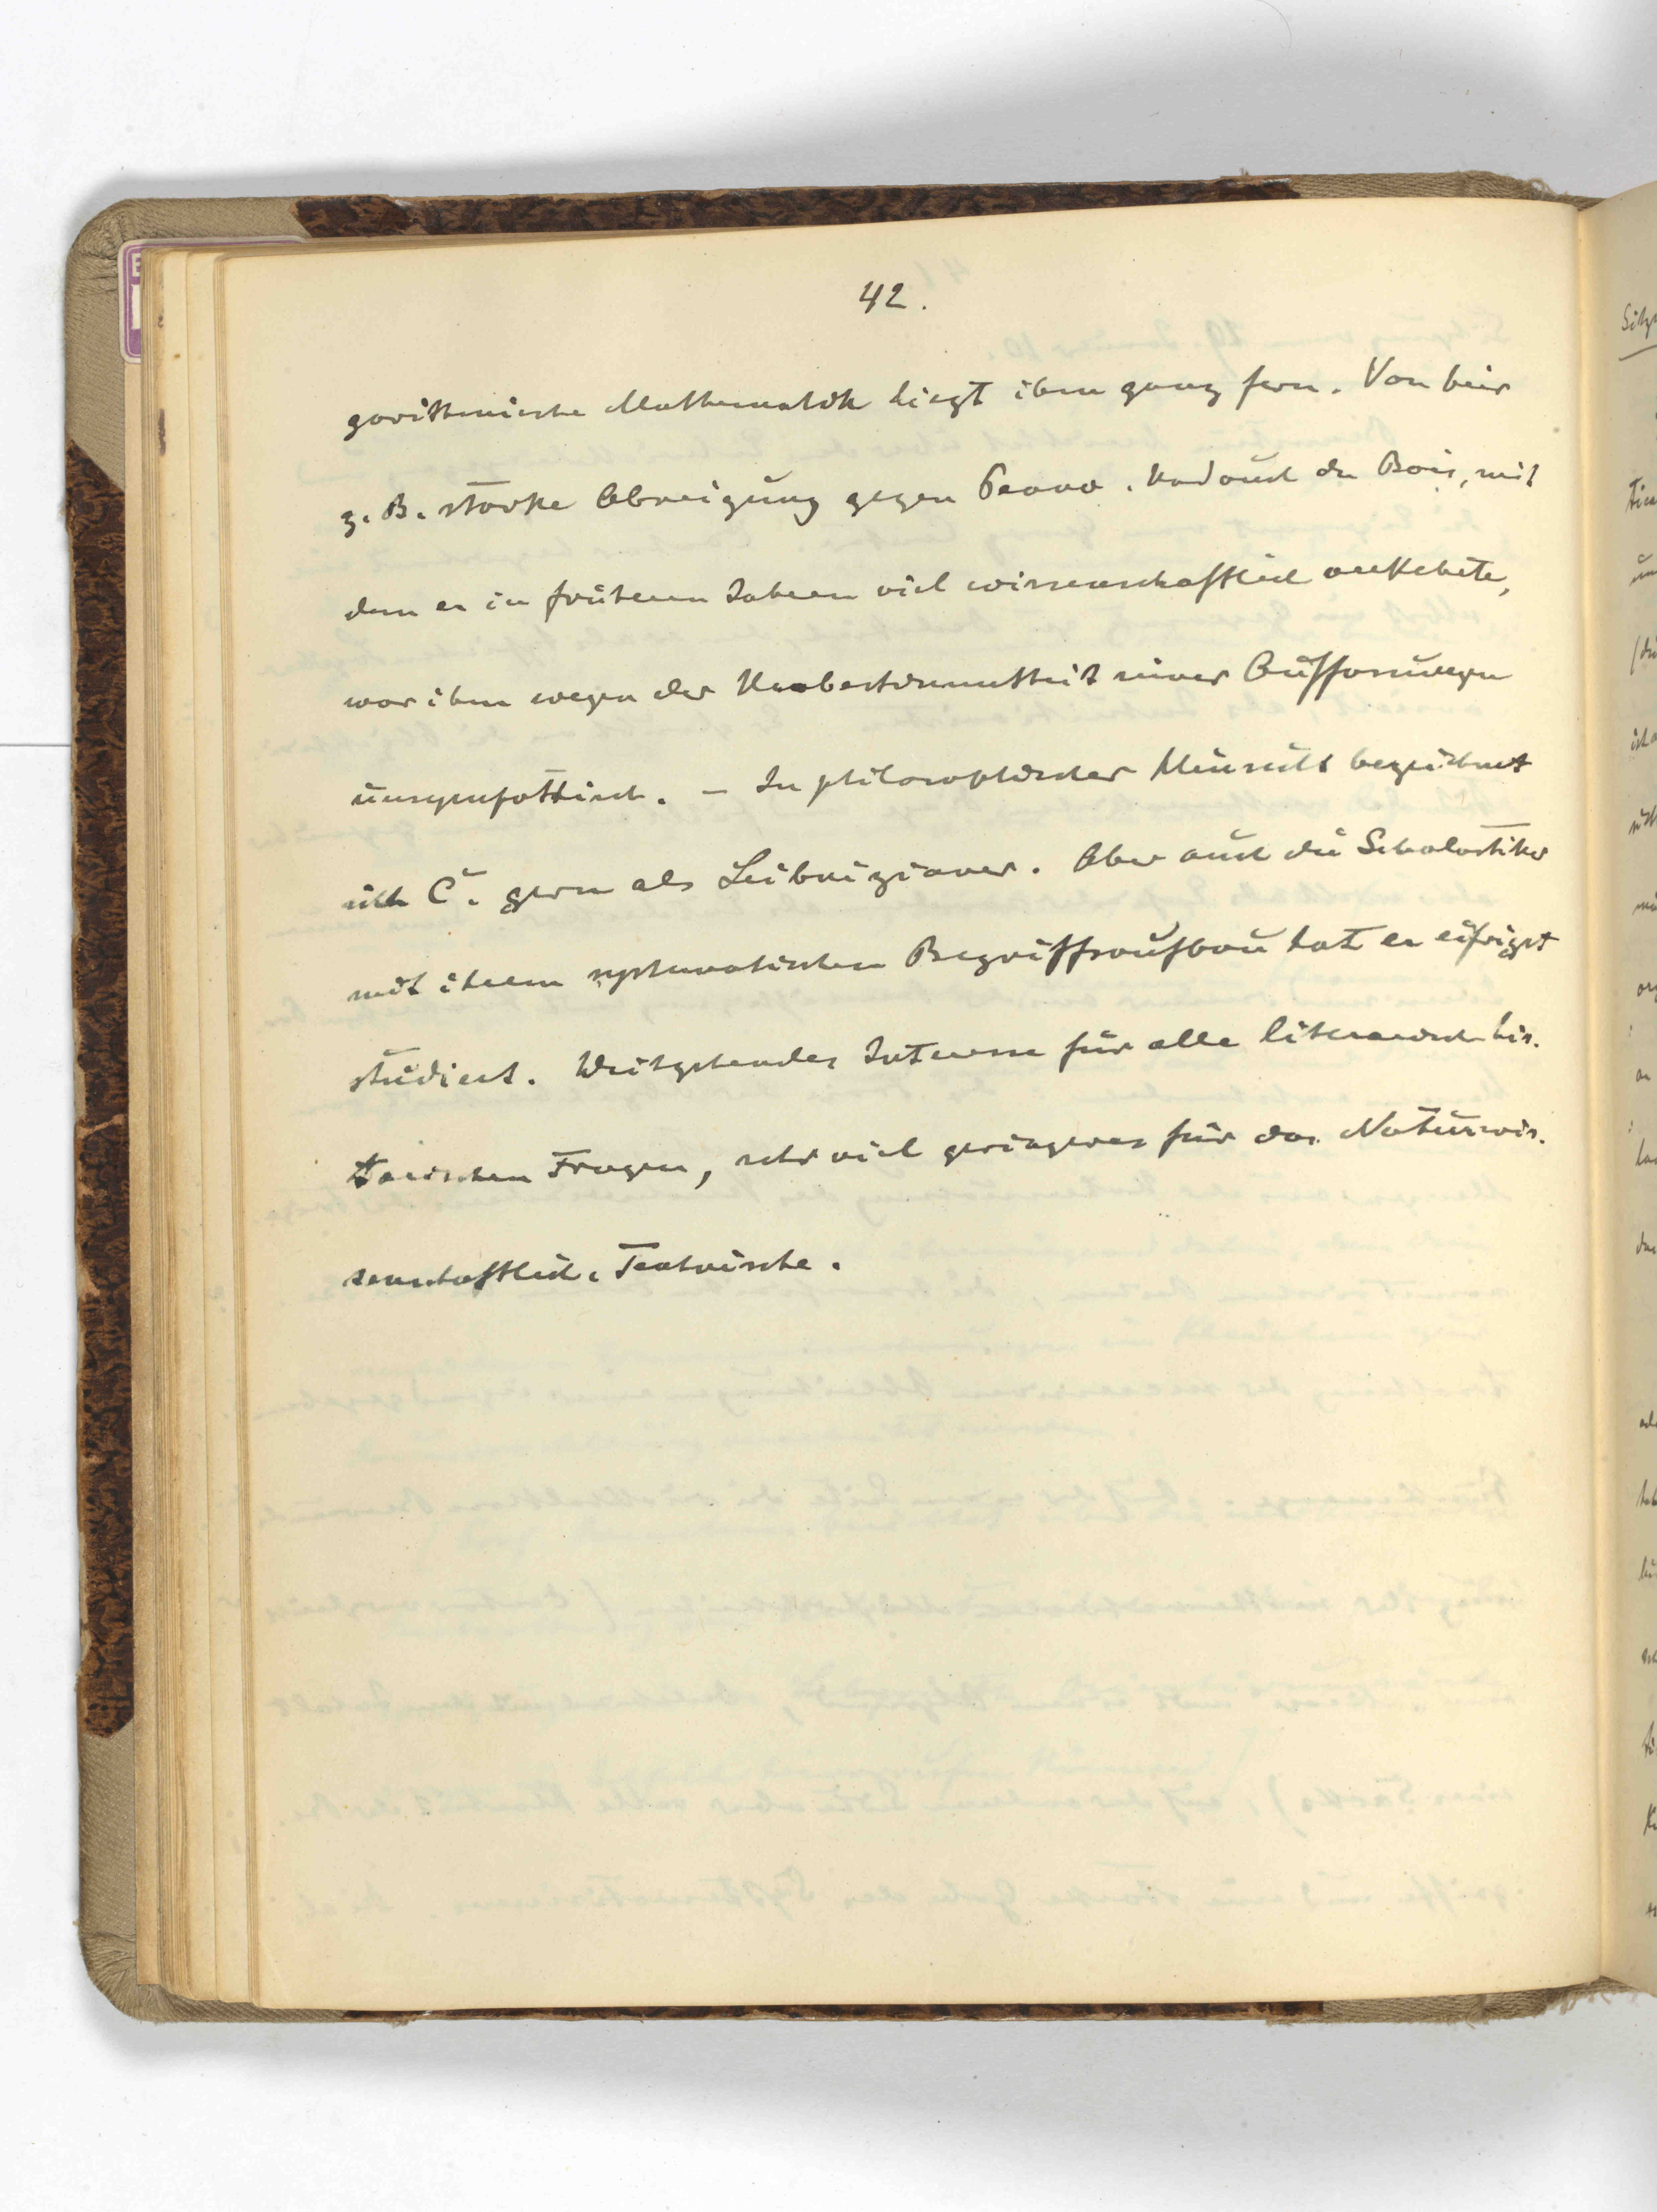 42.
gorithmische Mathematik liegt ihm ganz fern. Von hier
z. B. starke Abneigung gegen Peano. Und auch du Bois, mit
dem er in früheren Jahren viel wissenschaftlich verkehrte,
war ihm wegen der Unbestimmtheit seiner Auffassungen
unsympathisch. – In philosophischer Hinsicht bezeichnet
sich C. gern als Leibnizianer. Aber auch die Scholastiker
mit ihrem systematischen Begriffsaufbau hat er eifrigst
studiert. Weitgehendes Interesse für alle literarisch-his-
torischen Fragen, sehr viel geringeres für das Naturwis-
senschaftlich-Technische.